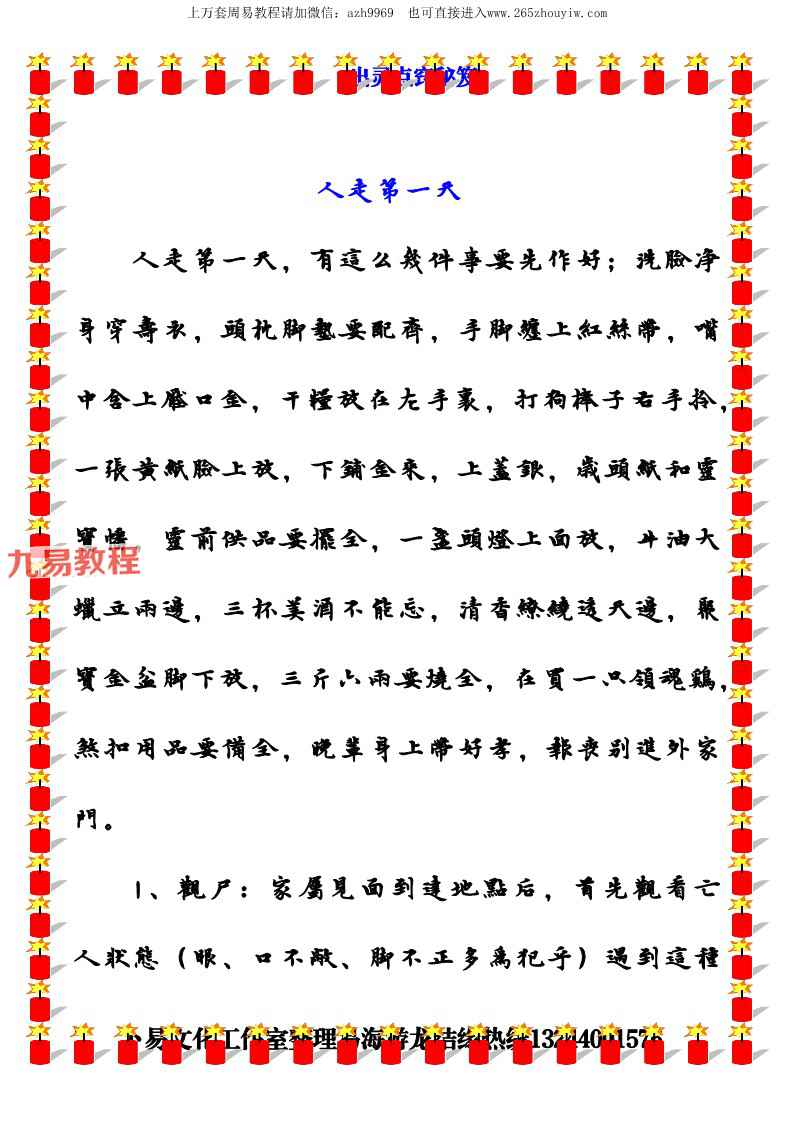 上万套周易教程请加微信：azh9969　也可直接进入www.265zhouyiw.com
人走第一天
人走第一天，有這么幾件事要先作好；洗臉净
身穿壽衣，頭枕脚墊要配齊，手脚纏上紅絲帶，嘴
中含上壓口金，干糧放在左手裏，打狗棒子右手拎，
一張黄紙臉上放，下鋪金來，上蓋銀，歲頭紙和靈
寶幡 靈前供品要擺全，一盞頭燈上面放，斗油大
九易教程
蠟立兩邊，三杯美酒不能忘，清香繚繞透天邊，聚
寶金盆脚下放，三斤六兩要燒全，在買一只領魂鷄，
煞扣用品要備全，晚輩身上帶好孝，報喪别進外家
門。
1、觀尸：家屬見面到達地點后，首先觀看亡
人狀態（眼、口不敞、脚不正多爲犯乎）遇到這種